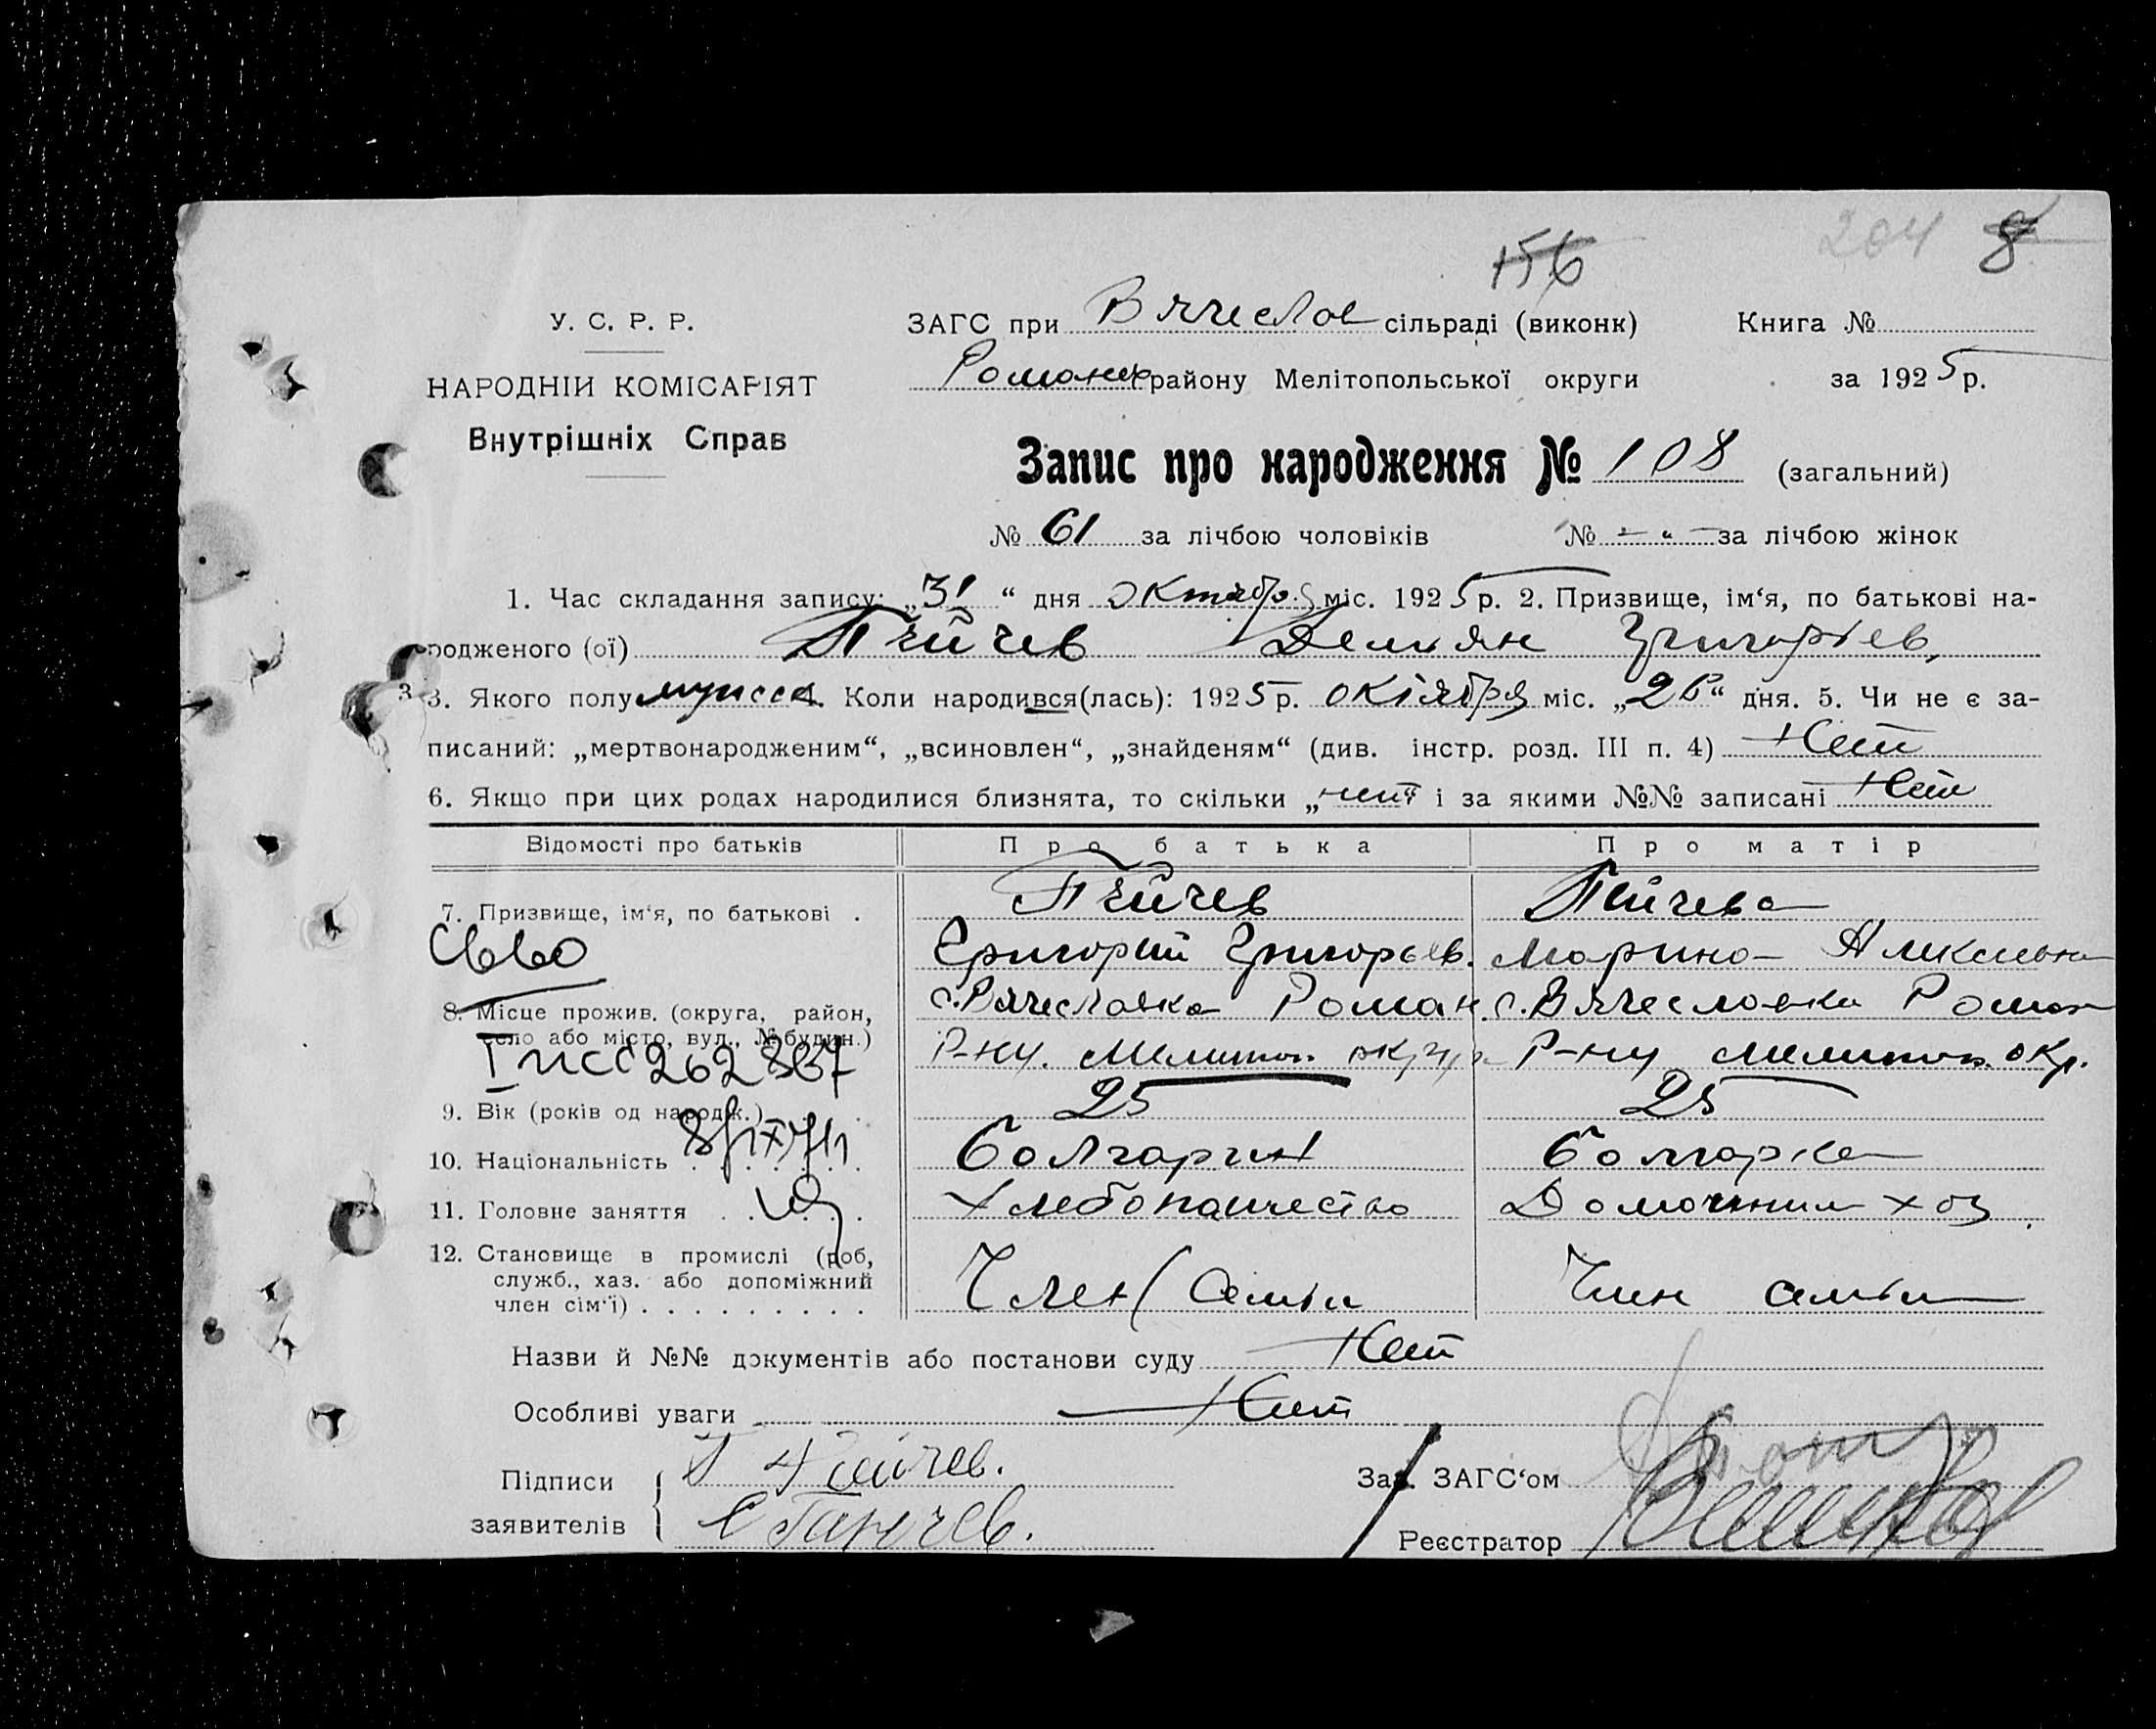 156 204 8
У. С. Р. Р. ЗАГС при Вячеслов сільраді (виконк) Книга №
НАРОДНІЙ КОМІСАРІЯТ Романих району Мелітопольської округи за 1925 р.
Внутрішніх Справ
Запис про народження № 108 (загальний)
№ 61 за лічбою чоловіків № — „ — за лічбою жінок
1. Час складання запису: „31“ дня Октября міс. 1925 р. 2. Призвище, ім‘я, по батькові на-
родженого (ої) Пейчев Демьян Григорьев,
3 3. Якого полу мужеск 4. Коли народився(лась): 1925 р. октября міс. „26“ дня. 5. Чи не є за-
писаний: „мертвонародженим“, „всиновлен“, „знайденям“ (див. інстр. розд. III п. 4) Нет
6. Якщо при цих родах народилися близнята, то скільки „нет і за якими №№ записані Нет
Відомості про батьків Про батька Про матір
7. Призвище, ім‘я, по батькові . Пейчев Пейчева
Григорий Григорьев. Марина Алексеевна
8. Місце прожив. (округа, район, с. Вячеславка Роман. с. Вячесловка Роман
село або місто, вул., № будин.) Р-ну. Мелитоп. округа Р-ну Мелитоп. окр.
9. Вік (років од народж.) 25 25
10. Національність Болгарин Болгарка
11. Головне заняття Хлебопашество Домашним хоз.
12. Становище в промислі (роб,
служб., хаз. або допоміжний Член семьи Член семьи
член сім‘ї)
Назви й №№ документів або постанови суду Нет
Особливі уваги Нет
Підписи Пейчев. Зав. ЗАГС‘ом
заявителів Ганчев. Реєстратор